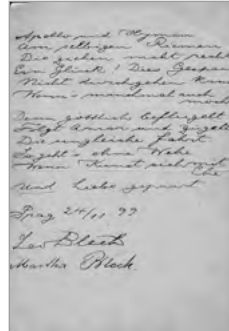 Apollo und Hymen
Am selbigen Riemen
Die ziehen nicht recht
Ein Glück! Dies Gespann
Nicht durchgehen kann
Wenn's manchmal auch
möcht
Denn göttlich beflügelt
Folgt Amor und zügelt
Die ungleiche Fahrt
So geht's ohne Wehe
Wenn Kunst sich mit
Ehe
Und Liebe gepaart
Prag 24/11 99
Leo Blech
Martha Blech.